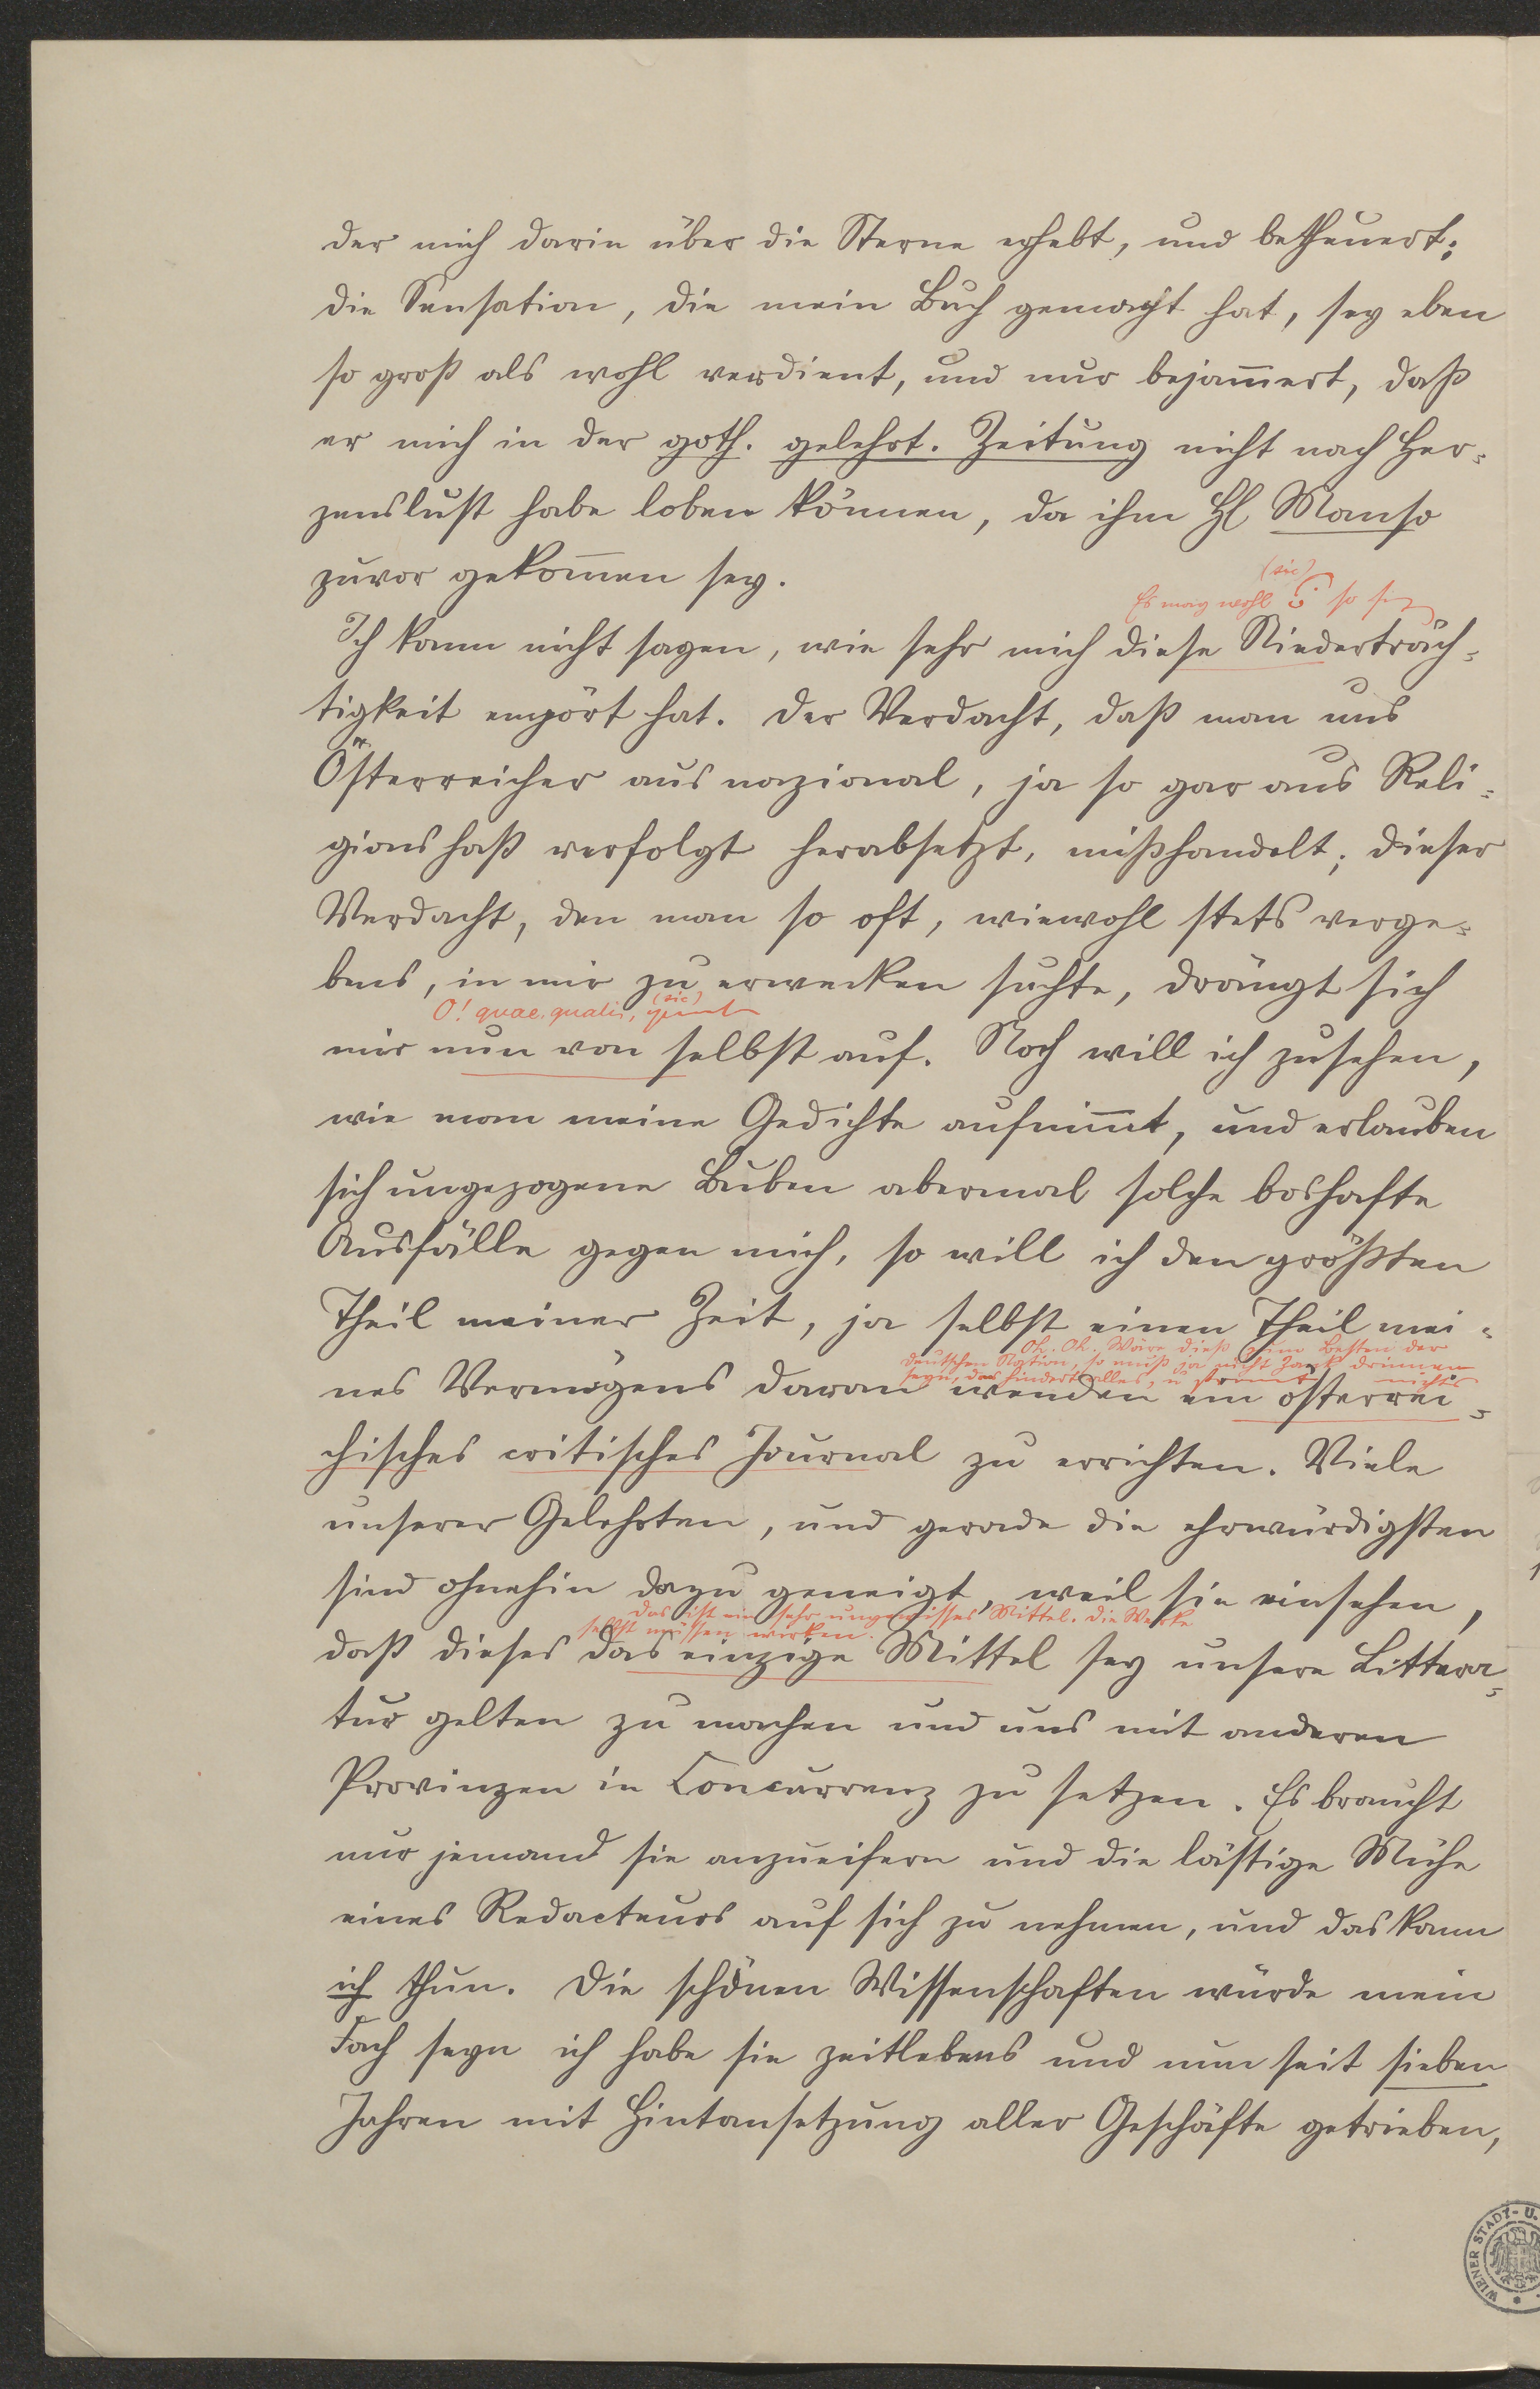 der mich darin über die Sterne erhebt, und betheuert:
die Sensation, die mein Buch gemacht hat, sey eben
so groß als wohl verdient, und nur bejam̄ert, daß
er mich in der goth. gelehrt. Zeitung nicht nach Her-
zenslust habe loben können, da ihm H Manso
zuvor gekom̄en sey.
(sic)
Es mag wohl so sey
Ich kann nicht sagen, wie sehr mich diese Niederträch-
tigkeit empört hat. Der Verdacht, daß man uns
Österreicher aus nazional, ja so gar aus Reli-
gionshaß verfolgt herabsetzt, mißhandelt; dieser
Verdacht, den man so oft, wiewohl stets verge-
bens, in mir zu erwecken suchte, drängt sich
O! quae, qualis, (sic)
mir nun von selbst auf. Noch will ich zusehen,
wie man meine Gedichte aufnim̄t, und erlauben
sich ungezogene Buben abermal solche boshafte
Ausfälle gegen mich, so will ich den größten
Theil meiner Zeit, ja selbst einen Theil mei-
Oh. Oh. Wäre dieß zum Besten der
deutschen Nation, so muß ja nicht Zank drinnen
seyn, das hindert alles, u nichts
nes Vermögens daran wenden ein österrei-
chisches critisches Journal zu errichten. Viele
unserer Gelehrten, und gerade die ehrwürdigsten
sind ohnehin dazu geneigt, weil sie einsehen,
das ist ein sehr ungewisses Mittel. Die Werke
selbst müssen wirken.
daß dieses das einzige Mittel sey unsere Littera-
tur gelten zu machen und uns mit anderen
Provinzen in Concurrenz zu setzen. Es braucht
nur jemand sie anzueifern und die lästige Mühe
eines Redacteurs auf sich zu nehmen, und das kann
ich thun. Die schönen Wissenschaften würde mein
Fach seyn ich habe sie zeitlebens und nun seit sieben
Jahren mit Hintansetzung aller Geschäfte getrieben,
WIENER STADT- U.